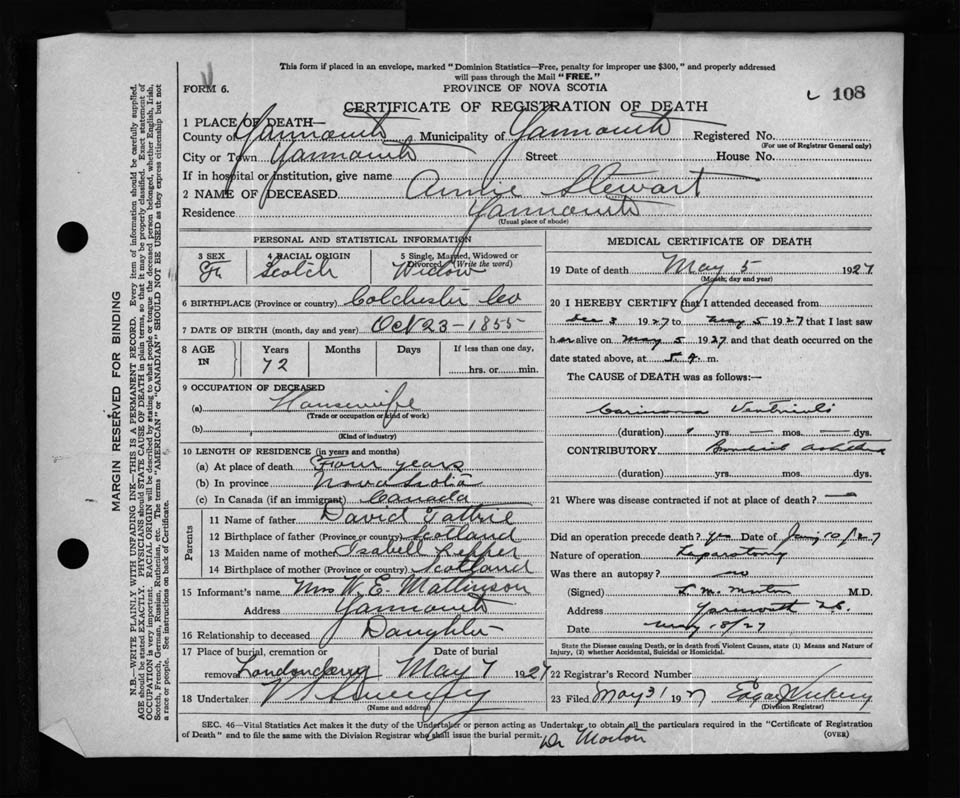 This form if placed in an envelope, marked "Dominion Statistics—Free, penalty for improper use $300," and properly addressed
will pass through the Mail "FREE."
FORM 6.
PROVINCE OF NOVA SCOTIA
CERTIFICATE OF REGISTRATION OF DEATH
108
1 PLACE OF DEATH—
County of Yarmouth Municipality of Yarmouth Registered No.
(For use of Registrar General only)
City or Town Yarmouth Street House No.
If in hospital or institution, give name
2 NAME OF DECEASED Annie Stewart
Residence Yarmouth
(Usual place of abode)
PERSONAL AND STATISTICAL INFORMATION
3 SEX 4 RACIAL ORIGIN 5 Single, Married, Widowed or Divorced (Write the word)
Scotch Widow
6 BIRTHPLACE (Province or country) Colchester Co
7 DATE OF BIRTH (month, day and year) Oct 23-1855
8 AGE IN Years Months Days If less than one day,
72 hrs. or min.
9 OCCUPATION OF DECEASED
(a) Housewife
(Trade or occupation or kind of work)
(b)
(Kind of industry)
10 LENGTH OF RESIDENCE (in years and months)
(a) At place of death Four years
(b) In province Nova Scotia
(c) In Canada (if an immigrant) Canada
Parents
11 Name of father David Tattrie
12 Birthplace of father (Province or country) Scotland
13 Maiden name of mother Isabell
14 Birthplace of mother (Province or country) Scotland
15 Informant's name Mrs W. E. Mattinson
Address Yarmouth
16 Relationship to deceased Daughter
17 Place of burial, cremation or removal Date of burial
Londonderry May 7 1927
18 Undertaker
(Name and address)
MEDICAL CERTIFICATE OF DEATH
19 Date of death May 5 1927
(Month, day and year)
20 I HEREBY CERTIFY that I attended deceased from
3 1927 to May 5 1927 that I last saw
her alive on May 5 1927 and that death occurred on the
date stated above, at m.
The CAUSE of DEATH was as follows:—
(duration) yrs. — mos. — dys.
CONTRIBUTORY
(duration) yrs. mos. dys.
21 Where was disease contracted if not at place of death? —
Did an operation precede death? yes Date of
Nature of operation Laparotomy
Was there an autopsy? no
(Signed) Morton M.D.
Address Yarmouth N.S.
Date May 18/27
State the Disease causing Death, or in death from Violent Causes, state (1) Means and Nature of
Injury, (2) whether Accidental, Suicidal or Homicidal.
22 Registrar's Record Number
23 Filed May 31 1927 Edgar Vickery
(Division Registrar)
SEC. 46—Vital Statistics Act makes it the duty of the Undertaker or person acting as Undertaker to obtain all the particulars required in the "Certificate of Registration
of Death" and to file the same with the Division Registrar who shall issue the burial permit.
(OVER)
Dr Morton
MARGIN RESERVED FOR BINDING
N.B.—WRITE PLAINLY WITH UNFADING INK—THIS IS A PERMANENT RECORD. Every item of information should be carefully supplied.
AGE should be stated EXACTLY. PHYSICIANS should STATE CAUSE OF DEATH in plain terms, so that it may be properly classified. Exact statement of
OCCUPATION is very important. RACIAL ORIGIN will be described by stating to what people or tongue the deceased person belonged, whether English, Irish,
Scotch, French, German, Russian, Ruthenian, etc. The terms "AMERICAN" or "CANADIAN" SHOULD NOT BE USED as they express citizenship but not
a race or people. See instructions on back of Certificate.